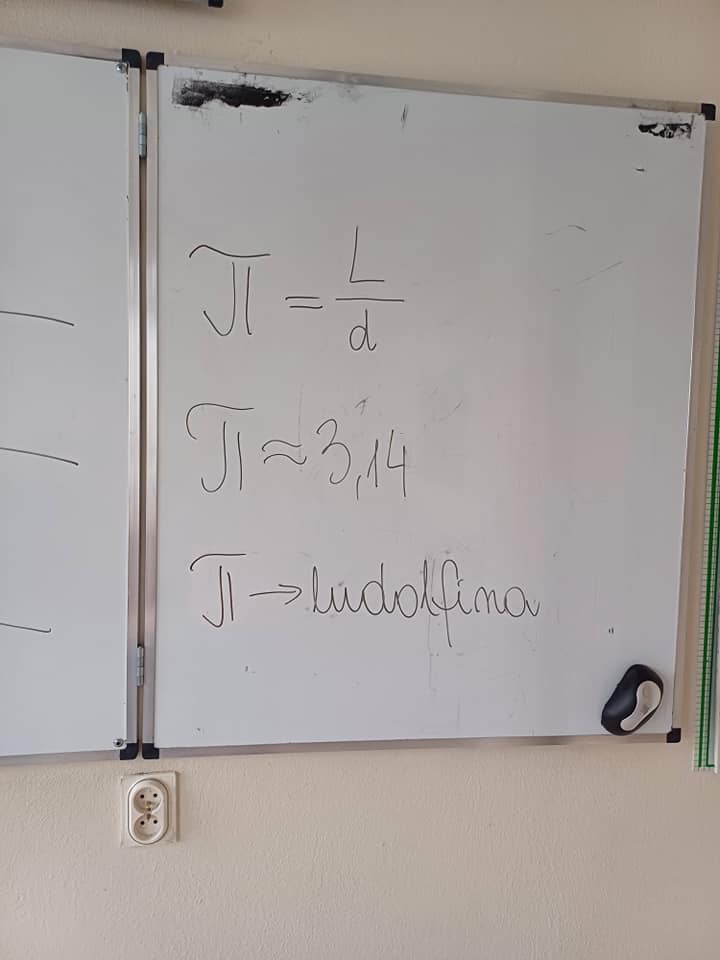 π = L/d
π ≈ 3,14
π → ludolfina